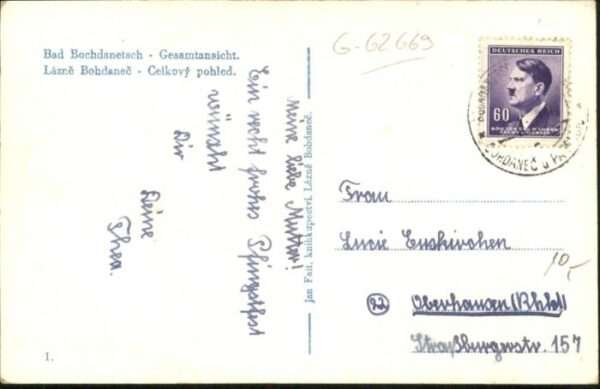 Bad Bochdanetsch - Gesamtansicht.
Lázně Bohdaneč - Celkový pohled.
G-62669
DEUTSCHES REICH
60
BÖHMEN UND MÄHREN
ČECHY A MORAVA
BOHDANEČ u
Meine liebe Mutter!
Ein recht frohes Pfingstfest
wünscht
Dir
Deine
Thea.
Jan Fait, knihkupectví, Lázně Bohdaneč.
Frau
Lucie Euskirchen
10,-
22
Oberhausen (Rhld)
Straßburgerstr. 157
1.